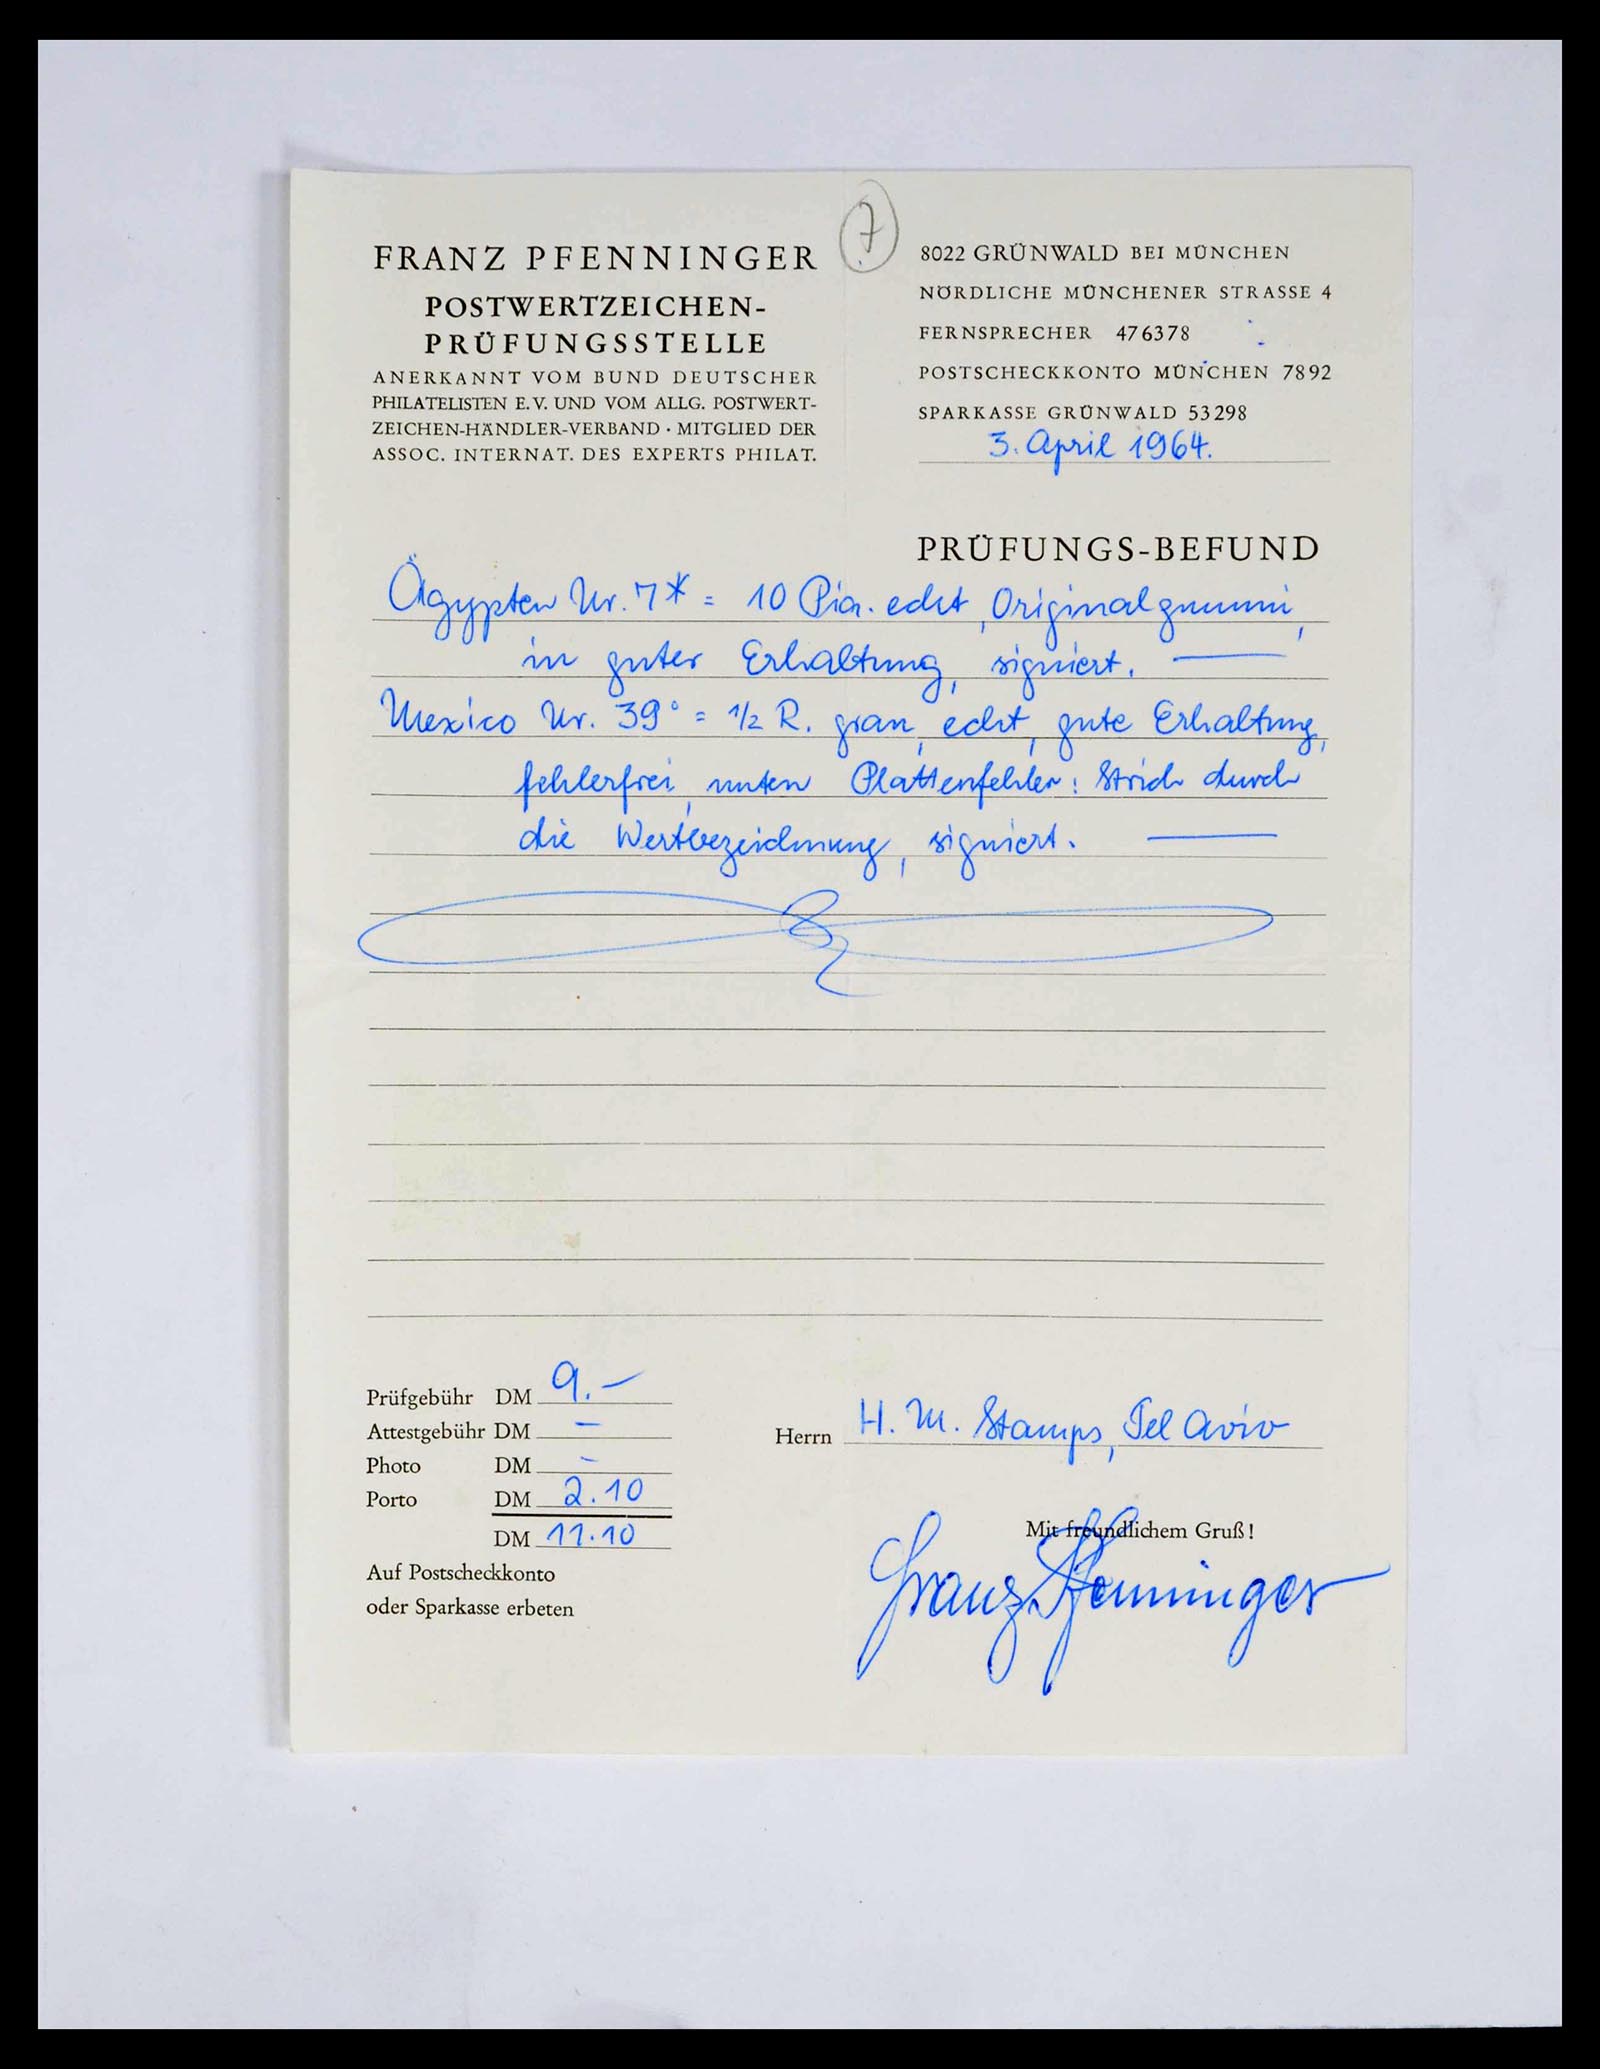 7
FRANZ PFENNINGER
POSTWERTZEICHEN-
PRÜFUNGSSTELLE
ANERKANNT VOM BUND DEUTSCHER
PHILATELISTEN E. V. UND VOM ALLG. POSTWERT-
ZEICHEN-HÄNDLER-VERBAND · MITGLIED DER
ASSOC. INTERNAT. DES EXPERTS PHILAT.
8022 GRÜNWALD BEI MÜNCHEN
NÖRDLICHE MÜNCHENER STRASSE 4
FERNSPRECHER 476378
POSTSCHECKKONTO MÜNCHEN 7892
SPARKASSE GRÜNWALD 53298
3. April 1964.
PRÜFUNGS-BEFUND
Ägypten Nr. 7* = 10 Pia. echt, Originalgummi,
in guter Erhaltung, signiert. —
Mexico Nr. 39° = 1/2 R. grau, echt, gute Erhaltung,
fehlerfrei, unten Plattenfehler: Strich durch
die Wertbezeichnung, signiert. —
Prüfgebühr DM 9.–
Attestgebühr DM –
Photo DM –
Porto DM 2.10
DM 11.10
Auf Postscheckkonto
oder Sparkasse erbeten
Herrn H. M. Stamps, Tel Aviv
Mit freundlichem Gruß!
Franz Pfenninger